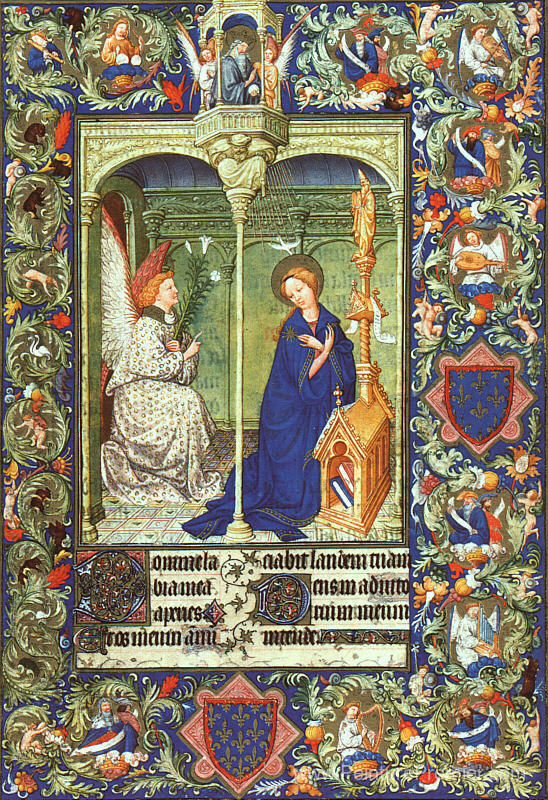 Domine la
bia mea
aperies
Et os meum annu
ciabit laudem tuam
Deus in adiuto
rium meum
intende